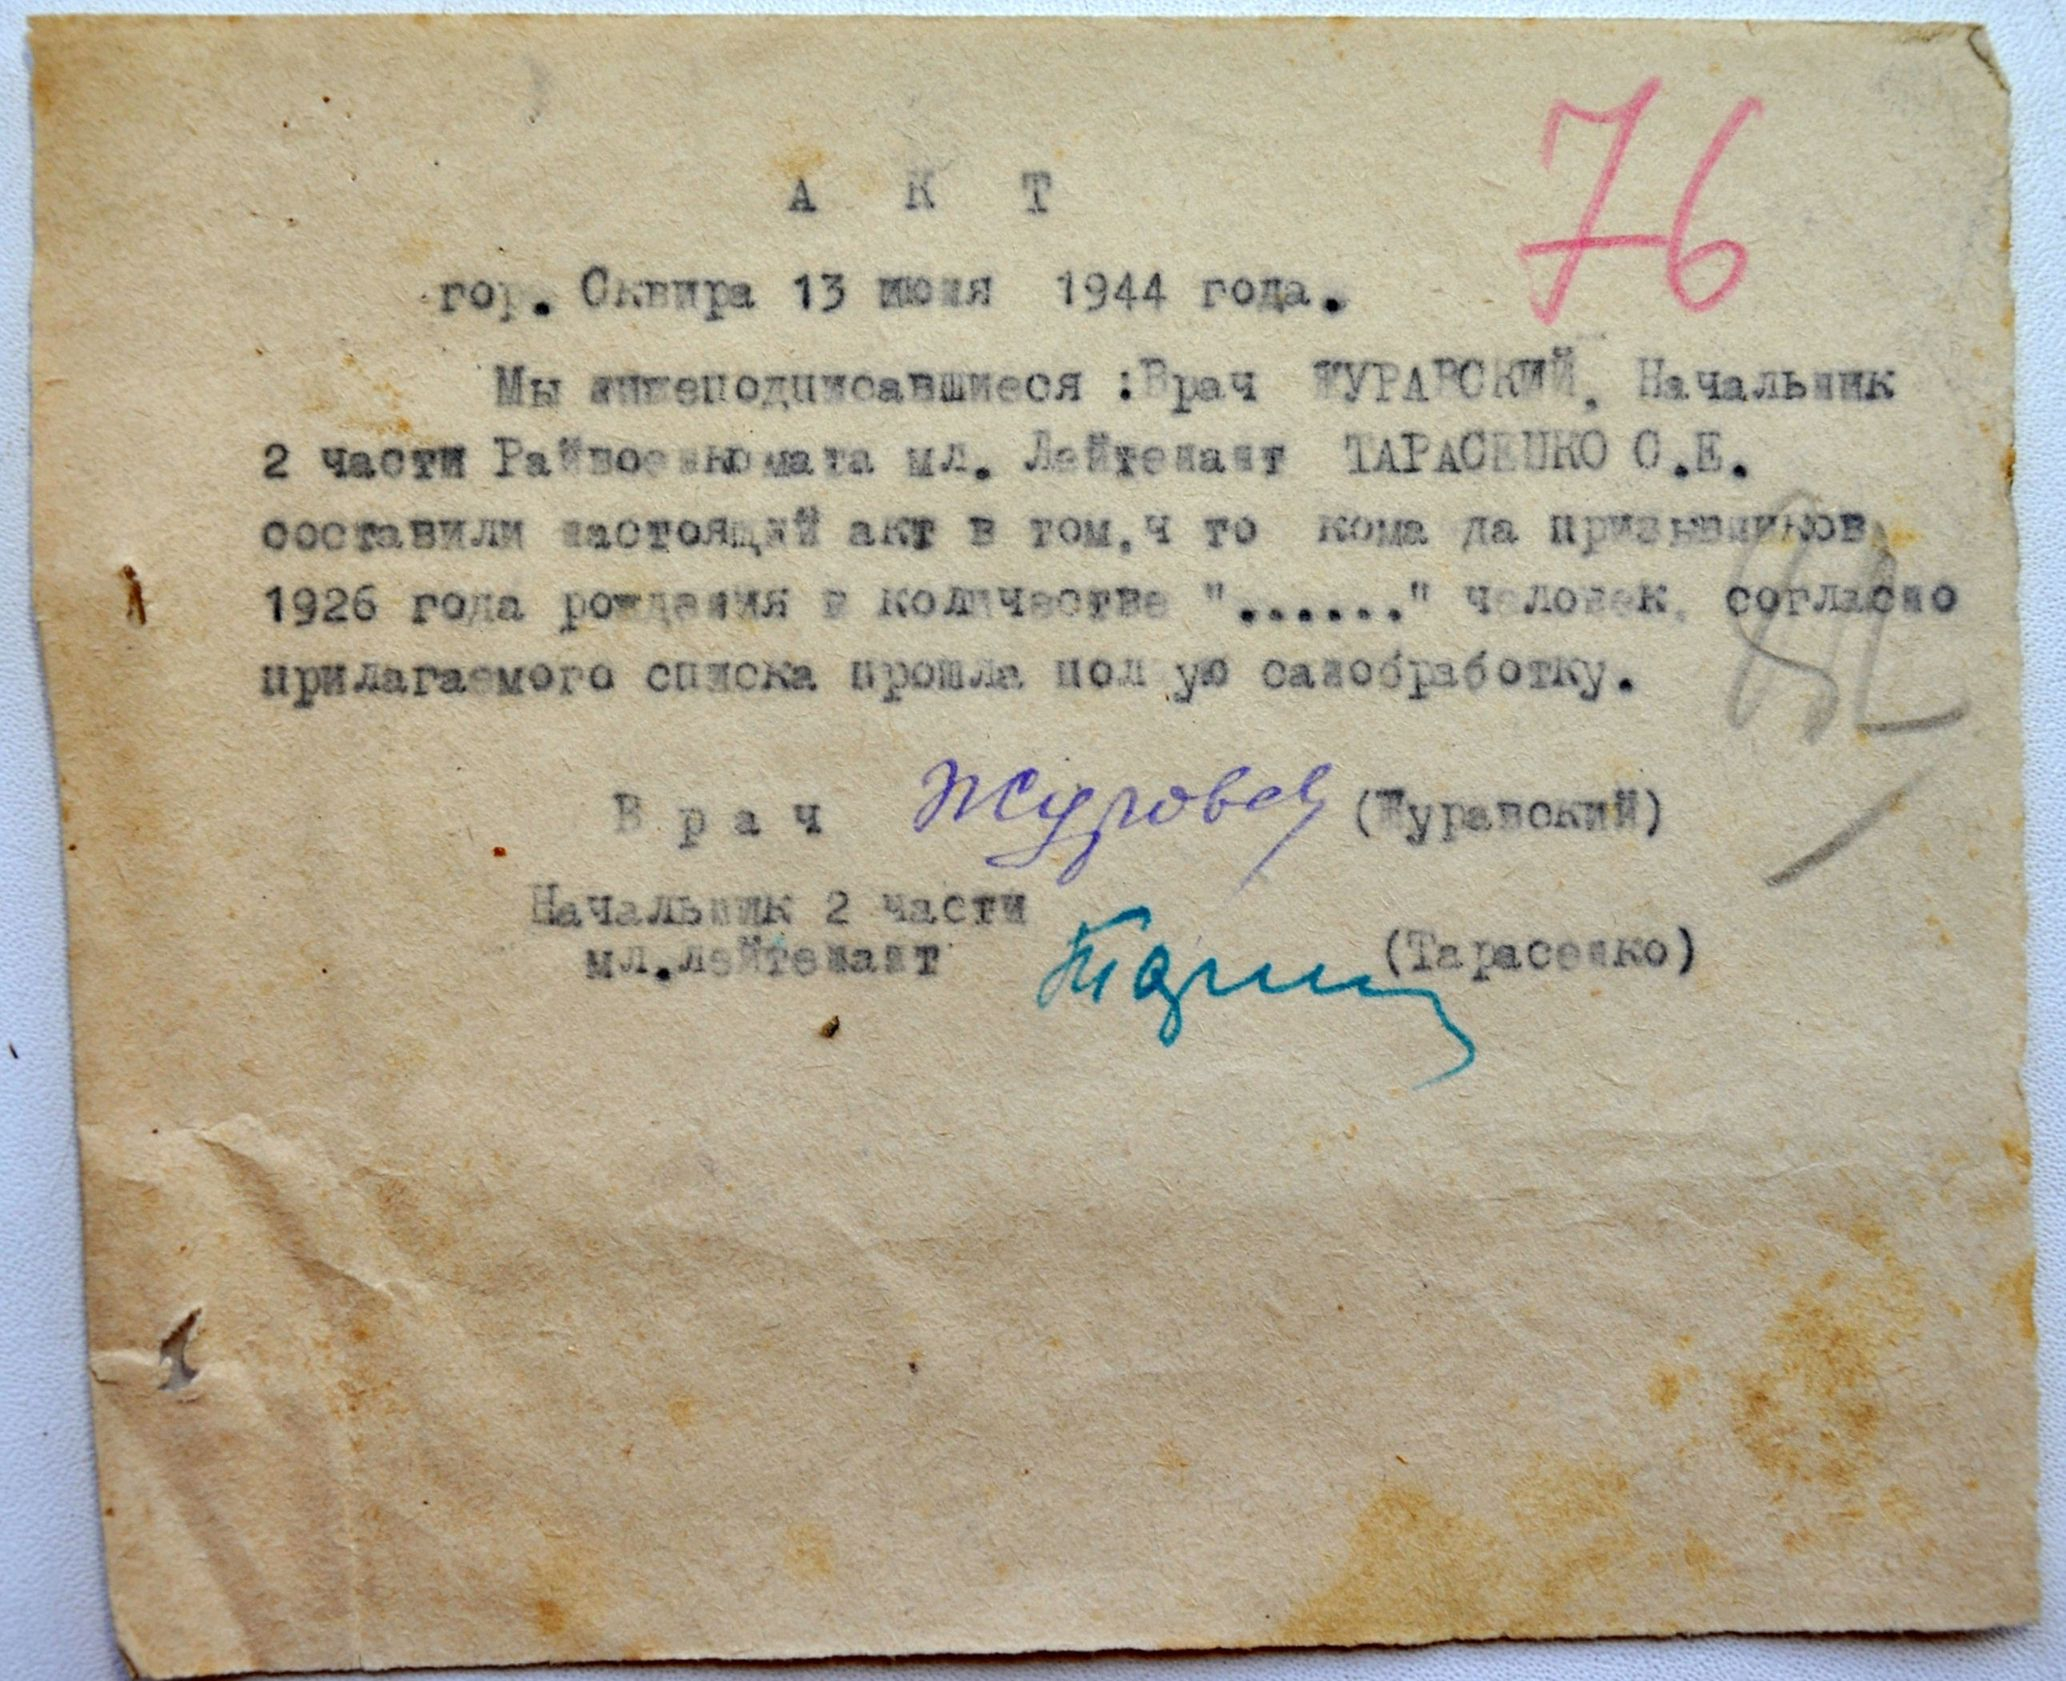 76
А К Т
гор. Сквира 13 июня 1944 года.
Мы нижеподписавшиеся :Врач ЖУРАВСКИЙ, Начальник
2 части Райвоенкомата мл. Лейтенант ТАРАСЕНКО С.Е.
составили настоящий акт в том,ч то кома да призывников
1926 года рождения в количестве "......" человек, согласно
прилагаемого списка прошла пол ую санобработку.
В р а ч (Журавский)
Начальник 2 части
мл.лейтенант (Тарасенко)